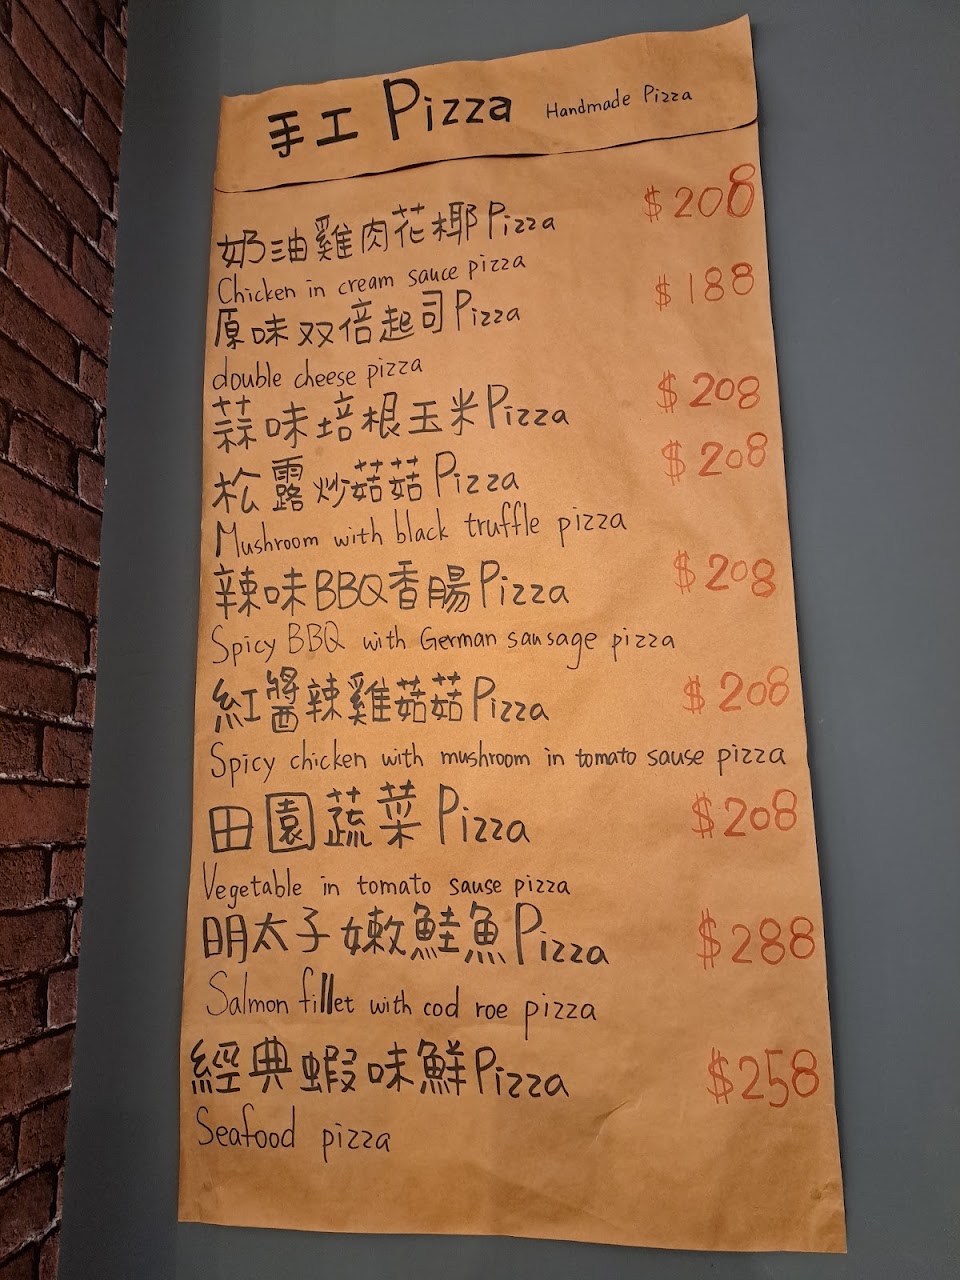 手工 Pizza Handmade Pizza
奶油雞肉花椰Pizza $208
Chicken in cream sauce pizza
原味双倍起司Pizza $188
double cheese pizza
蒜味培根玉米Pizza $208
松露炒菇菇Pizza $208
Mushroom with black truffle pizza
辣味BBQ香腸Pizza $208
Spicy BBQ with German sausage pizza
紅醬辣雞菇菇Pizza $208
Spicy chicken with mushroom in tomato sause pizza
田園蔬菜Pizza $208
Vegetable in tomato sause pizza
明太子嫩鮭魚Pizza $288
Salmon fillet with cod roe pizza
經典蝦味鮮Pizza $258
Seafood pizza